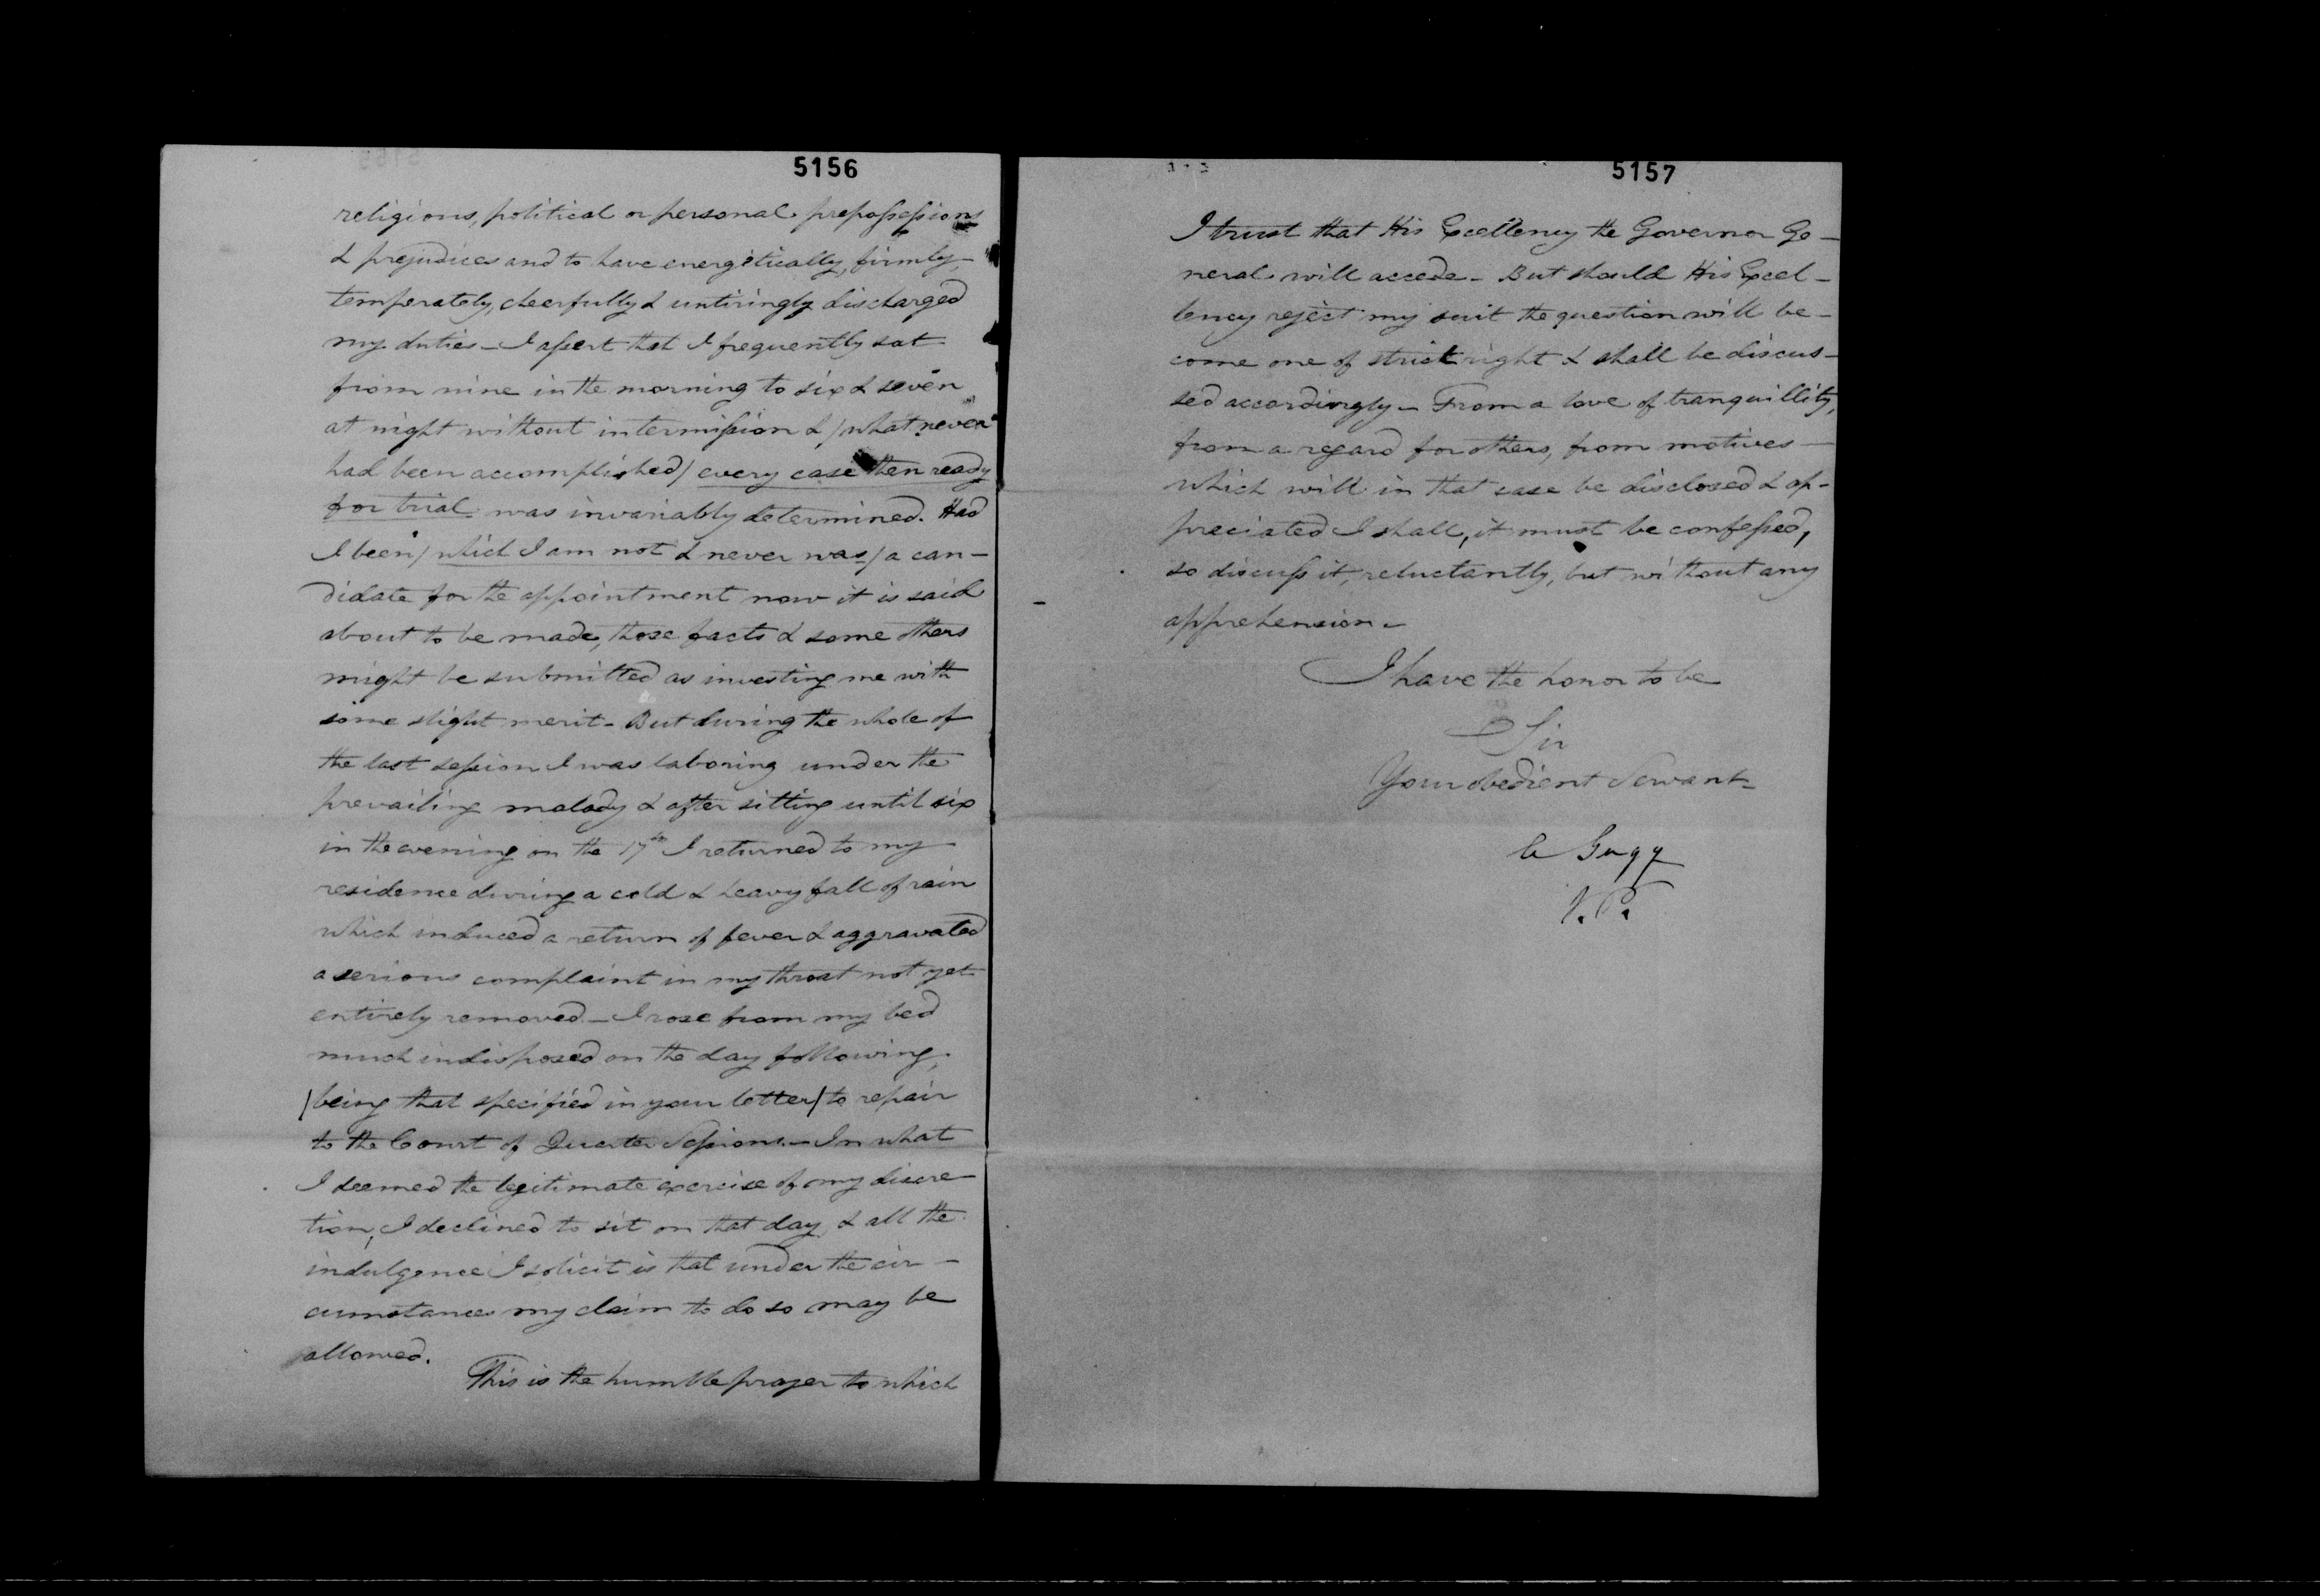 5156
religious, political or personal prepossessions
& prejudices and to have energetically, firmly,
temperately, cheerfully & untiringly discharged
my duties – I assert that I frequently sat
from nine in the morning to six & seven
at night without intermission & / what never
had been accomplished / every case then ready
for trial was invariably determined. Had
I been / which I am not & never was / a can-
didate for the appointment now it is said
about to be made, those facts & some others
might be submitted as investing me with
some slight merit – But during the whole of
the last session I was laboring under the
prevailing malady & after sitting until six
in the evening on the 17th I returned to my
residence during a cold & heavy fall of rain
which induced a return of fever & aggravated
a serious complaint in my throat not yet
entirely removed – I rose from my bed
much indisposed on the day following,
/ being that specified in your letter / to repair
to the Court of Quarter Sessions – In what
I deemed the legitimate exercise of my discre-
tion, I declined to sit on that day, & all the
indulgence I solicit is that under the cir-
cumstances my claim to do so may be
allowed.
This is the humble prayer to which
5157
I trust that His Excellency the Governor Ge-
neral will accede – But should His Excel-
lency reject my suit the question will be-
come one of strict right & shall be discus-
sed accordingly – From a love of tranquillity,
from a regard for others, from motives
which will in that case be disclosed & ap-
preciated I shall, it must be confessed,
so discuss it, reluctantly, but without any
apprehension –
I have the honor to be
Sir
Your obedient Servant
Gugy